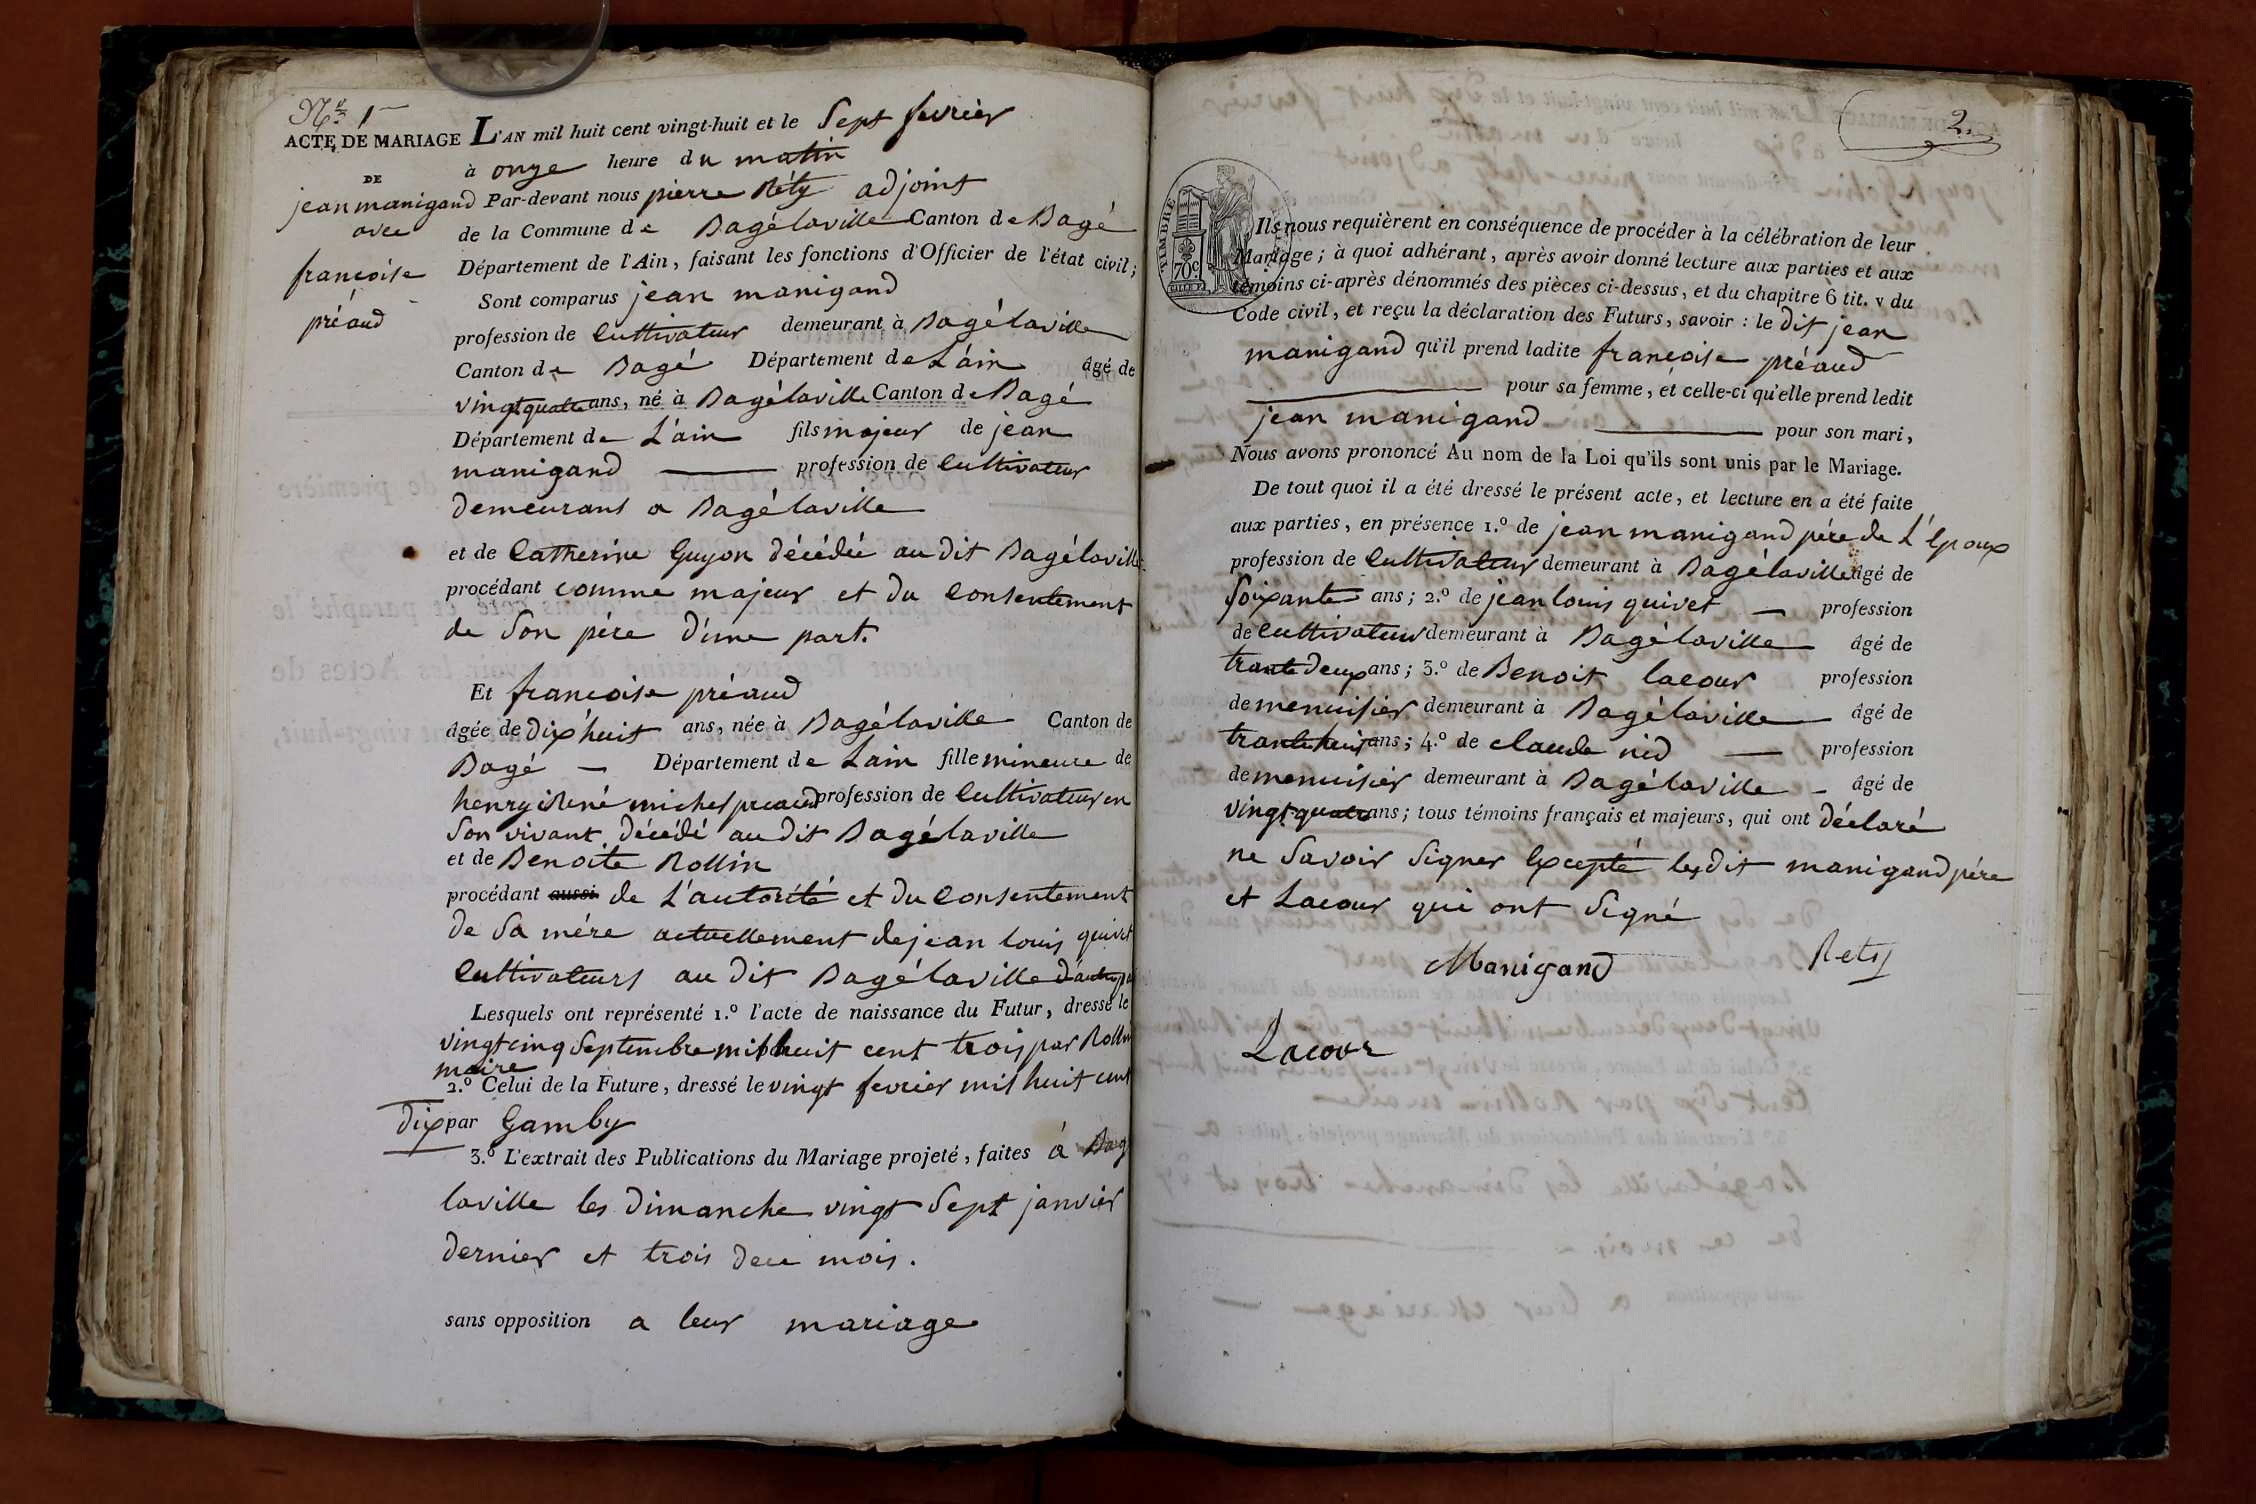 N.º 1
ACTE DE MARIAGE
DE
jean manigand
avec
francoise
préaud
L'AN mil huit cent vingt-huit et le Sept fevrier
à onze heure du matin
Par-devant nous pierre Réty adjoint
de la Commune de Bagélaville Canton de Bagé
Département de l'Ain, faisant les fonctions d'Officier de l'état civil;
Sont comparus jean manigand
profession de Cultivateur demeurant à Bagélaville
Canton de Bagé Département de L'ain âgé de
vingtquatre ans, né à Bagélaville Canton de Bagé
Département de L'ain fils majeur de jean
manigand profession de Cultivateur
demeurant a Bagélaville
et de Catherine Guyon décédée au dit Bagélaville
procédant comme majeur et du Consentement
de Son pére d'une part.
Et francoise préaud
âgée de dix'huit ans, née à Bagélaville Canton de
Bagé Département de Lain fille mineure de
henry René michel preaud profession de Cultivateur en
Son vivant décédé au dit Bagélaville
et de Benoite Rollin
procédant aussi de L'autorité et du Consentement
de Sa mére actuellement de jean louis quivet
Cultivateurs au dit Bagélaville d'autre
Lesquels ont représenté 1.º l'acte de naissance du Futur, dressé le
vingtcinq Septembre mil huit cent trois par Rollin
maire
2.º Celui de la Future, dressé le vingt fevrier mil huit cent
dix par Gamby
3.º L'extrait des Publications du Mariage projeté, faites à Bagé
laville les dimanche vingt Sept janvier
dernier et trois dece mois.
sans opposition a leur mariage
2
TIMBRE
70c
Ils nous requièrent en conséquence de procéder à la célébration de leur
Mariage; à quoi adhérant, après avoir donné lecture aux parties et aux
témoins ci-après dénommés des pièces ci-dessus, et du chapitre 6 tit. v du
Code civil, et reçu la déclaration des Futurs, savoir : le dit jean
manigand qu'il prend ladite françoise préaud
pour sa femme, et celle-ci qu'elle prend ledit
jean manigand pour son mari,
Nous avons prononcé Au nom de la Loi qu'ils sont unis par le Mariage.
De tout quoi il a été dressé le présent acte, et lecture en a été faite
aux parties, en présence 1.º de jean manigand pére de L'Epoux
profession de Cultivateur demeurant à Bagélaville âgé de
Soixante ans; 2.º de jean louis quivet profession
de Cultivateur demeurant à Bagélaville âgé de
trante deux ans; 3.º de Benoit lacour profession
de menuisier demeurant à Bagélaville âgé de
trante huit ans; 4.º de claude nid profession
de menuisier demeurant à Bagélaville âgé de
vingt quatre ans; tous témoins français et majeurs, qui ont déclaré
ne Savoir Signer Excepté les dit manigand pére
et Lacour qui ont Signé
Manigand Rety
Lacour